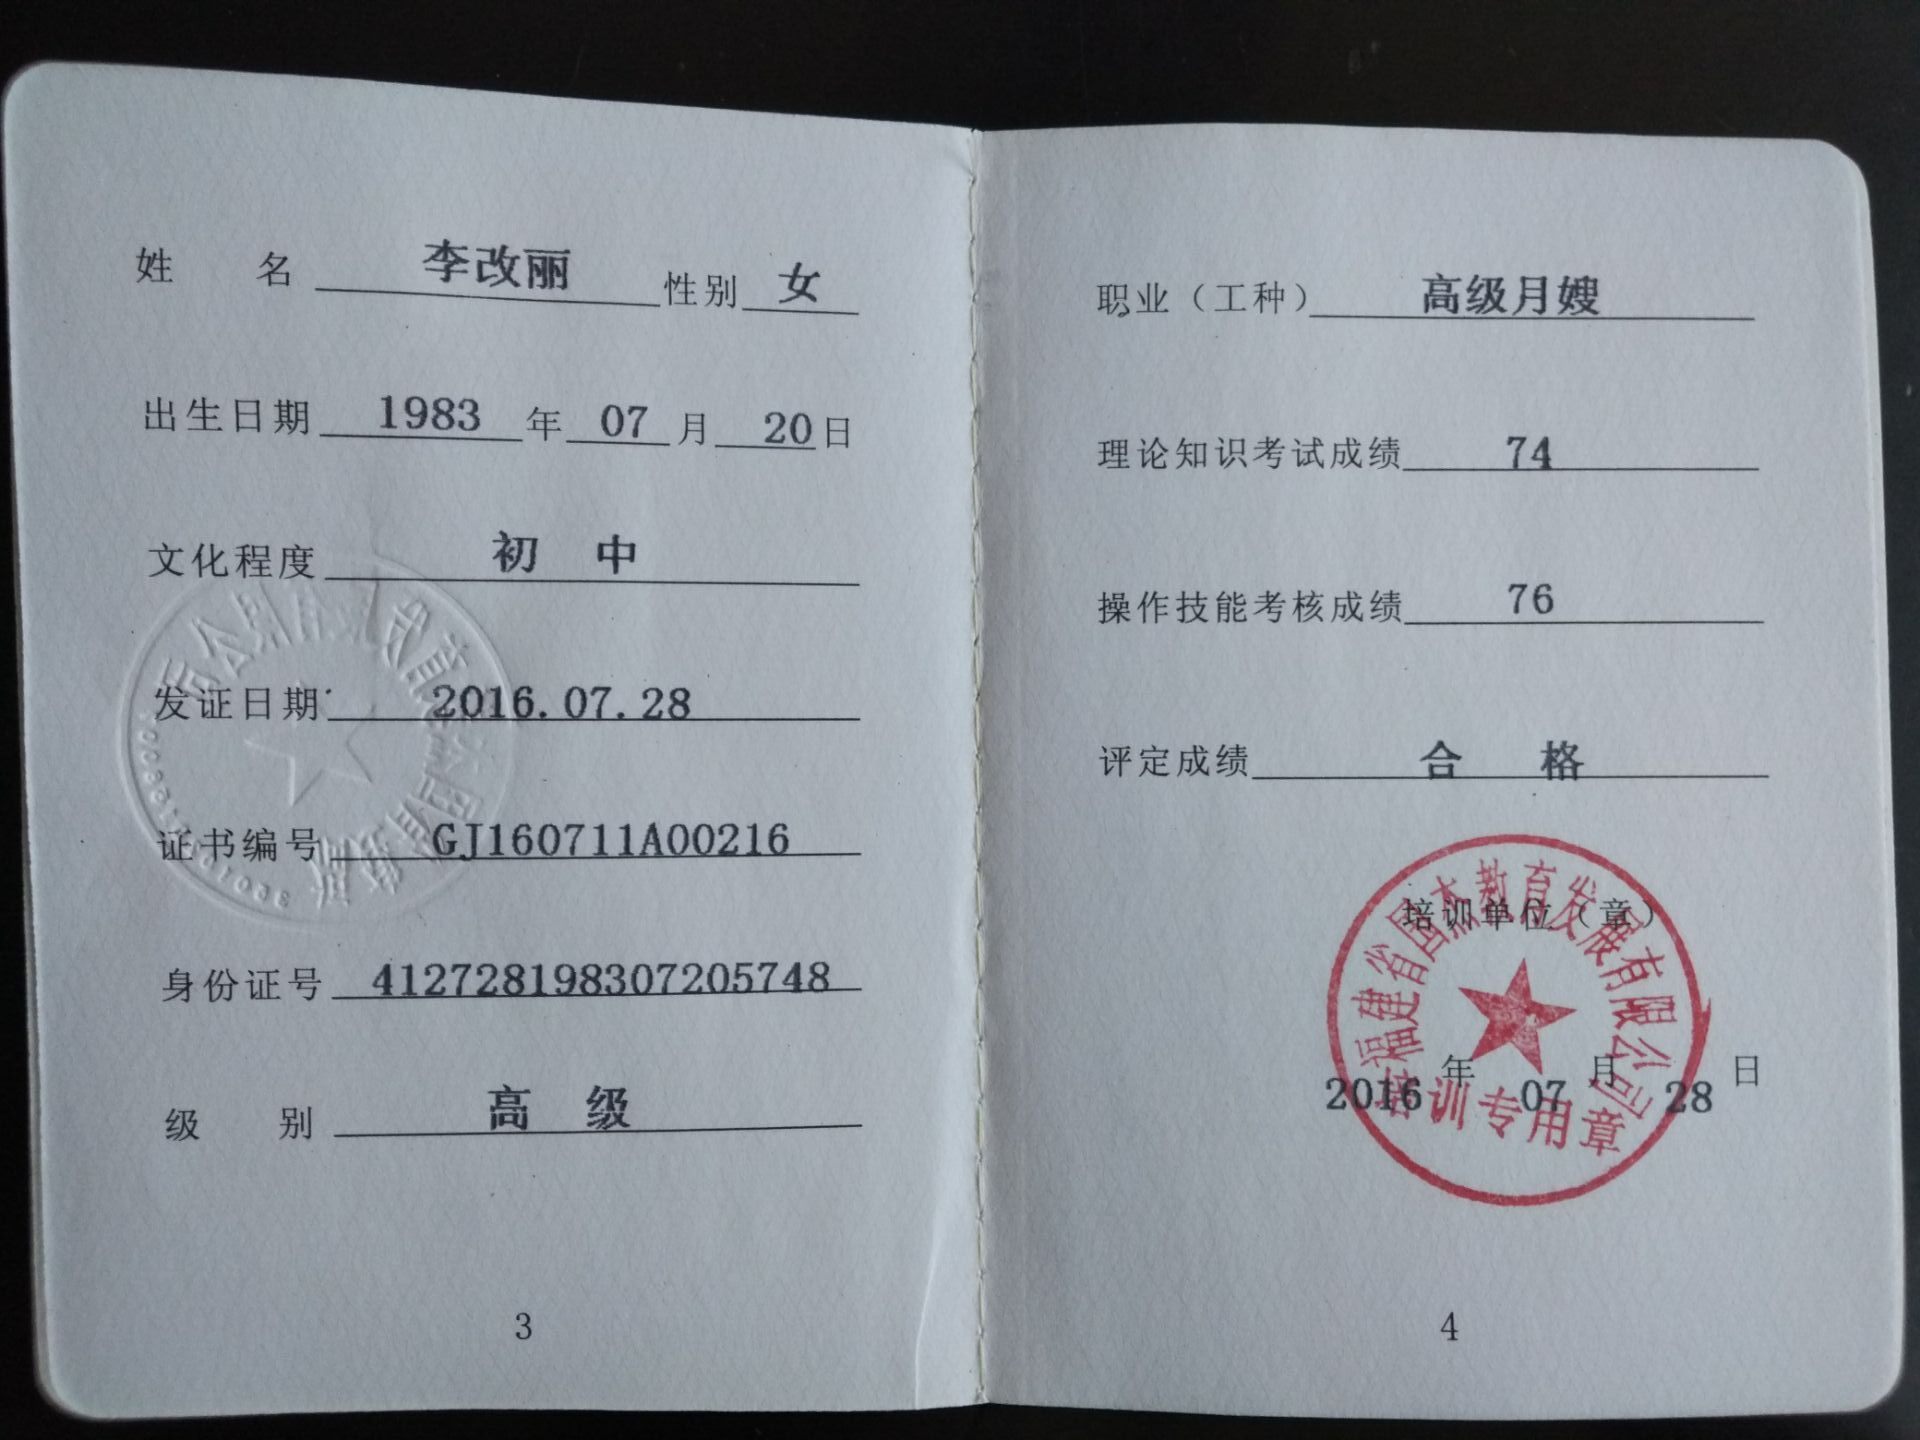 姓 名 李改丽 性别 女
出生日期 1983 年 07 月 20 日
文化程度 初 中
发证日期 2016.07.28
证书编号 GJ160711A00216
身份证号 412728198307205748
级 别 高 级
3
职业（工种） 高级月嫂
理论知识考试成绩 74
操作技能考核成绩 76
评定成绩 合 格
培训单位（章）
福建省国杰教育发展有限公司
年 月 日
2016 07 28
培训专用章
4